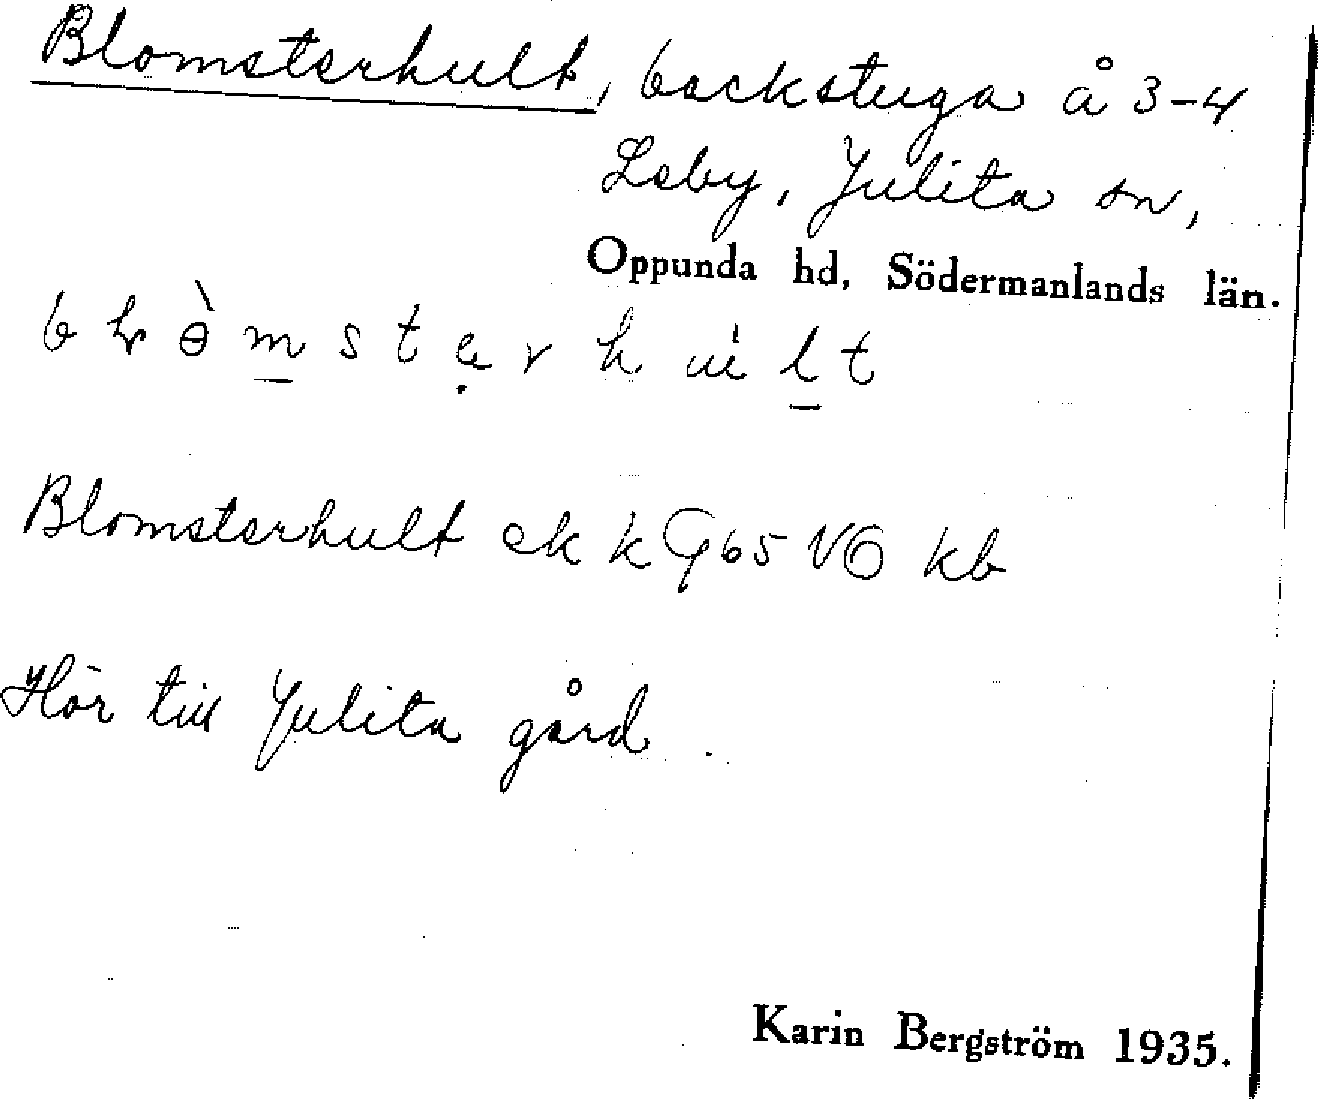 Blomsterhult, backstuga å 3-4
Leby, Julita sn,
Oppunda hd, Södermanlands län.
Blomsterhult ek k G 65 VÖ kb
Hör till Julita gård.
Karin Bergström 1935.